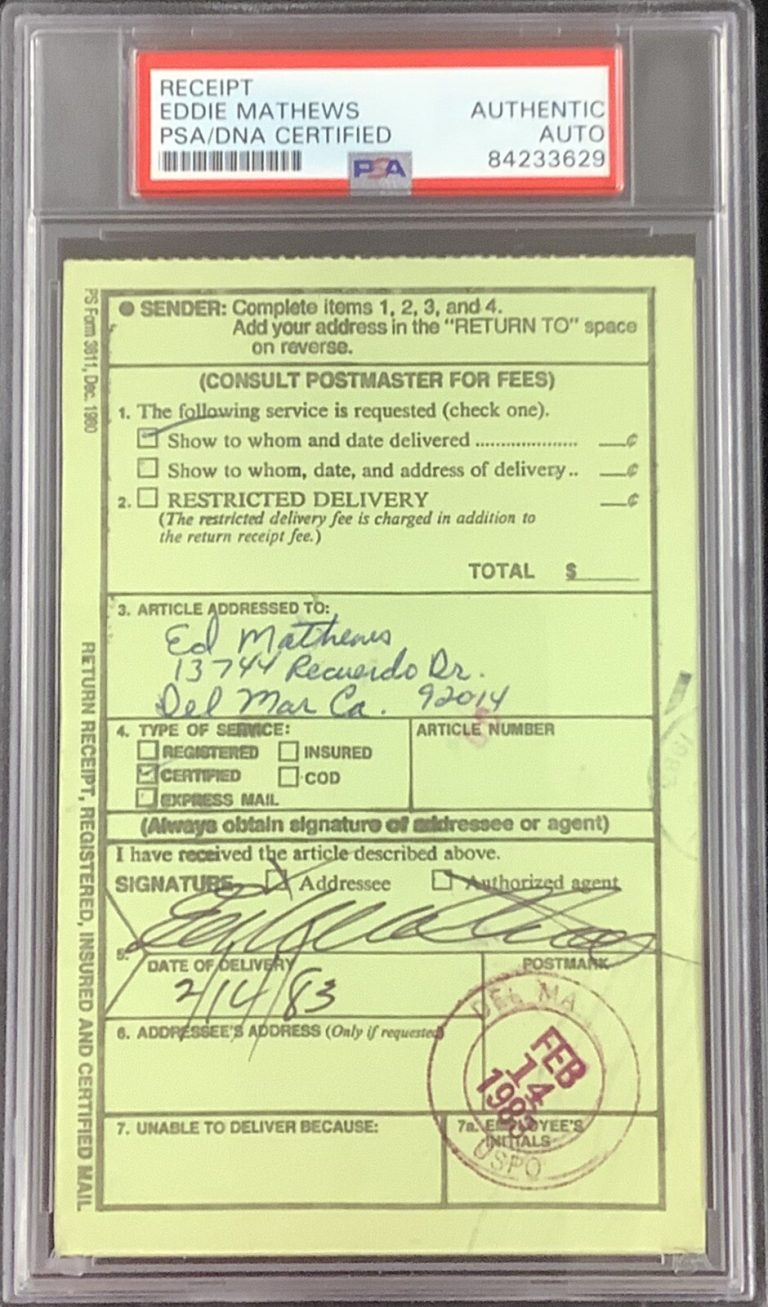 RECEIPT
EDDIE MATHEWS AUTHENTIC
PSA/DNA CERTIFIED AUTO
PSA 84233629
PS Form 3811, Dec. 1980
RETURN RECEIPT, REGISTERED, INSURED AND CERTIFIED MAIL
● SENDER: Complete items 1, 2, 3, and 4.
Add your address in the "RETURN TO" space
on reverse.
(CONSULT POSTMASTER FOR FEES)
1. The following service is requested (check one).
Show to whom and date delivered .................... __¢
Show to whom, date, and address of delivery.. __¢
2. RESTRICTED DELIVERY __¢
(The restricted delivery fee is charged in addition to
the return receipt fee.)
TOTAL $____
3. ARTICLE ADDRESSED TO:
Ed Mathews
13744 Recuerdo Dr.
Del Mar Ca. 92014
4. TYPE OF SERVICE: ARTICLE NUMBER
REGISTERED INSURED
CERTIFIED COD
EXPRESS MAIL
(Always obtain signature of addressee or agent)
I have received the article described above.
SIGNATURE Addressee Authorized agent
Ed Mathews
5. DATE OF DELIVERY POSTMARK
2/14/83
6. ADDRESSEE'S ADDRESS (Only if requested)
DEL MA
FEB
14
1983
USPO
7. UNABLE TO DELIVER BECAUSE: 7a. EMPLOYEE'S
INITIALS